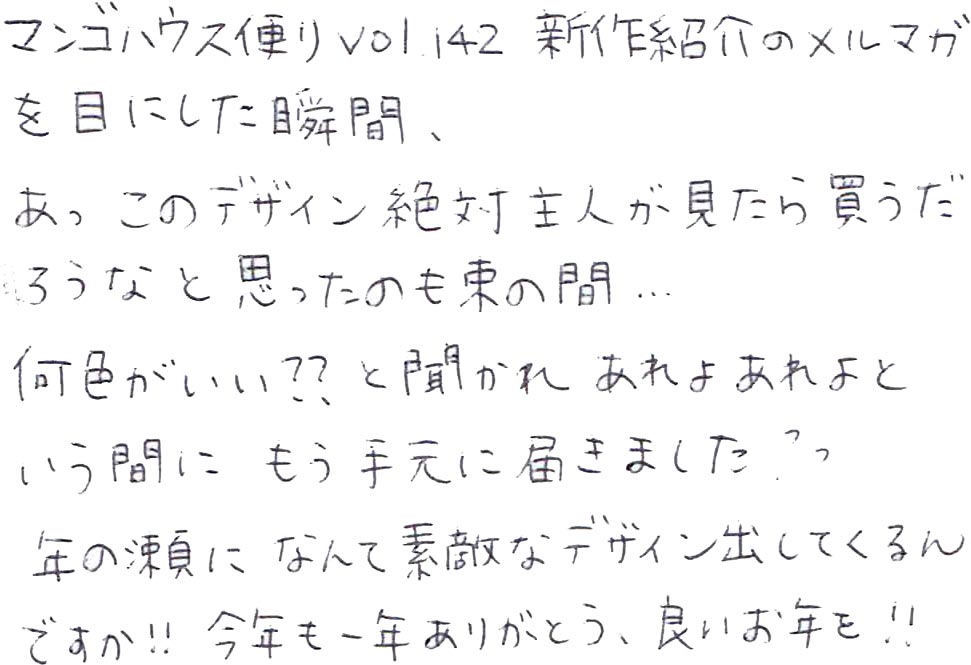 マンゴハウス便り vol.142 新作紹介のメルマガ
を目にした瞬間、
あっ このデザイン絶対主人が見たら買うだ
ろうなと思ったのも束の間…
何色がいい?? と聞かれ あれよあれよと
いう間に もう手元に届きました
年の瀬に なんて素敵なデザイン出してくるん
ですか!! 今年も一年ありがとう、良いお年を!!